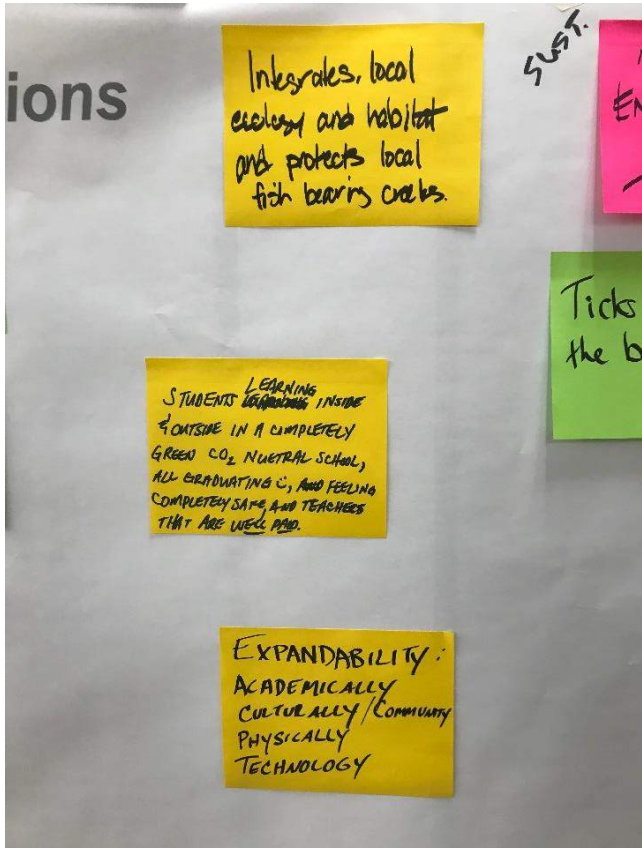 ions
Integrates, local
ecology and habitat
and protects local
fish bearing creeks.
SUST.
EN
Ticks
the b
LEARNING
STUDENTS INSIDE
& OUTSIDE IN A COMPLETELY
GREEN CO₂ NUETRAL SCHOOL,
ALL GRADUATING :), AND FEELING
COMPLETELY SAFE, AND TEACHERS
THAT ARE WELL PAID.
EXPANDABILITY:
ACADEMICALLY
CULTURALLY/COMMUNITY
PHYSICALLY
TECHNOLOGY